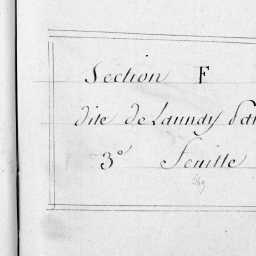 Section F
dite de Launay
3° Feuille